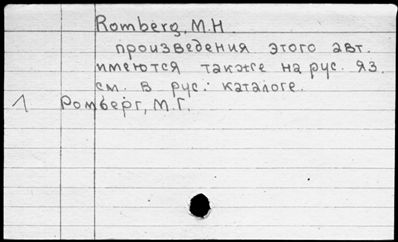 Romberg, M.H.
произведения этого авт.
имеются также на рус. яз.
см. в рус. каталоге.
1 Ромберг, М.Г.